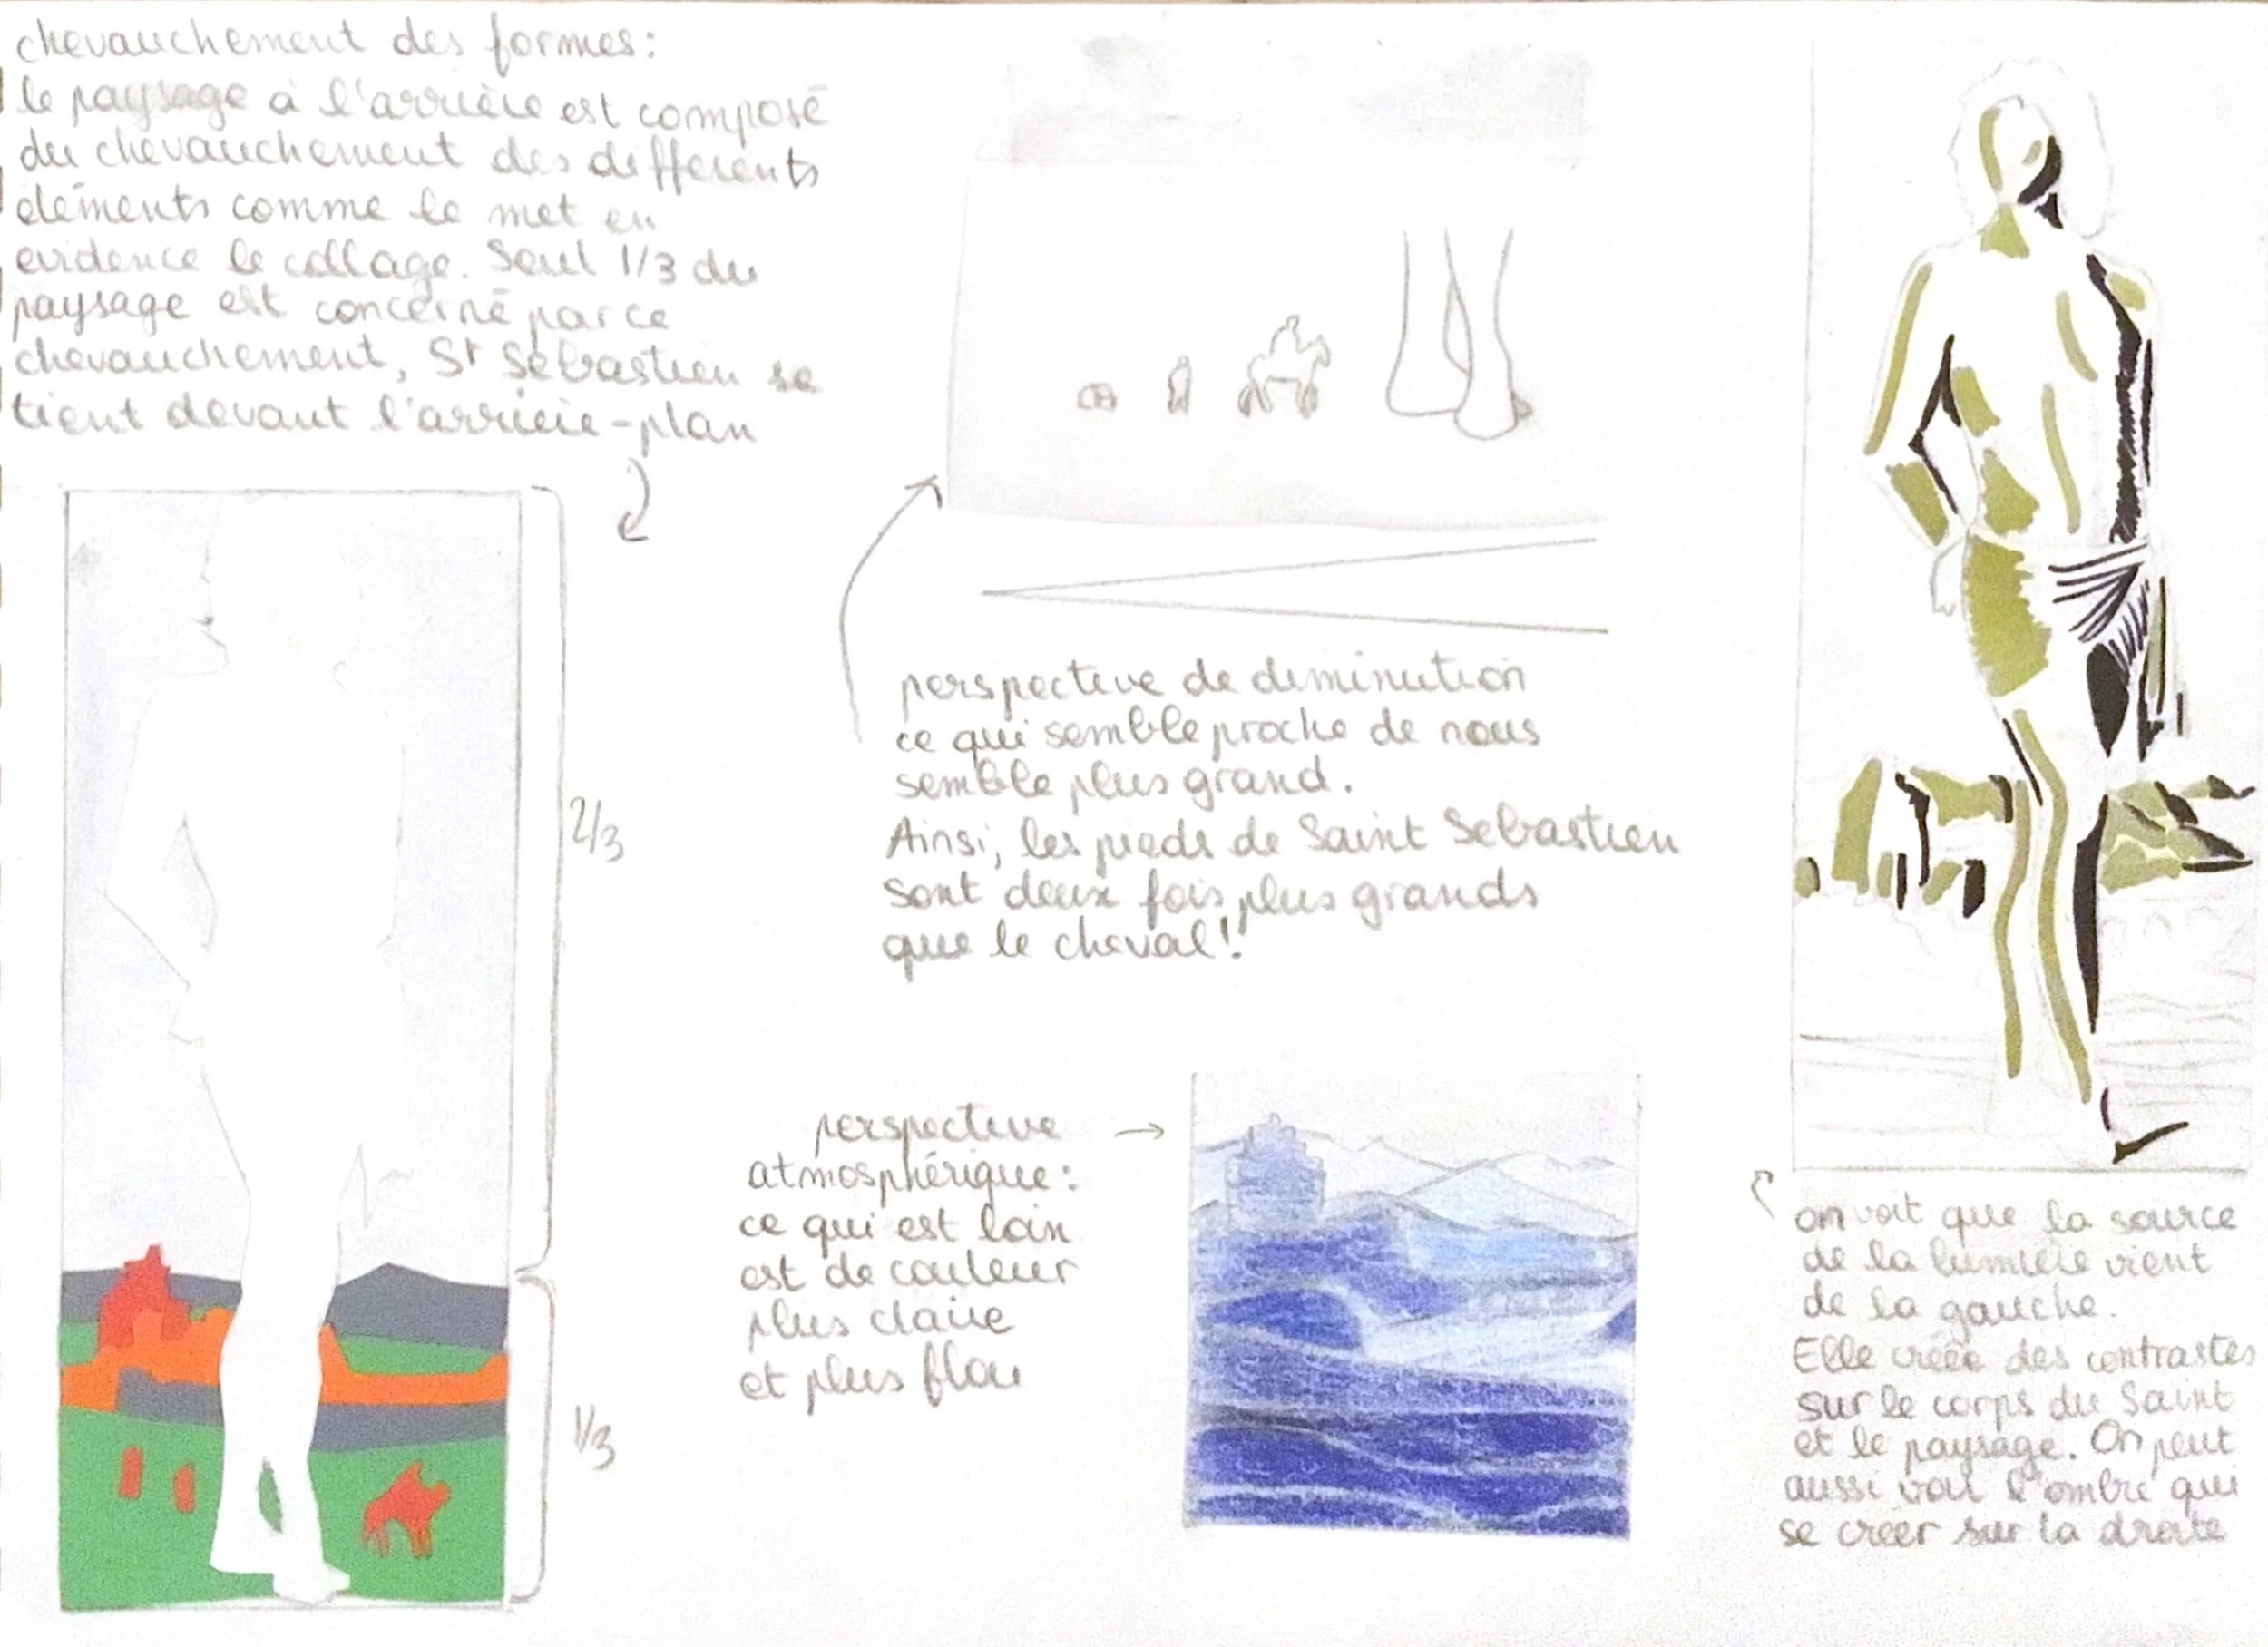 chevauchement des formes:
le paysage à l'arrière est composé
du chevauchement des différents
éléments comme le met en
evidence le collage. Seul 1/3 du
paysage est concerné par ce
chevauchement, St Sébastien se
tient devant l'arrière-plan
2/3
1/3
perspective de diminution
ce qui semble proche de nous
semble plus grand.
Ainsi, les pieds de Saint Sebastien
sont deux fois plus grands
que le cheval!
perspective
atmosphérique:
ce qui est loin
est de couleur
plus claire
et plus flou
on voit que la source
de la lumière vient
de la gauche.
Elle créée des contrastes
sur le corps du Saint
et le paysage. On peut
aussi voir l'ombre qui
se creer sur la droite